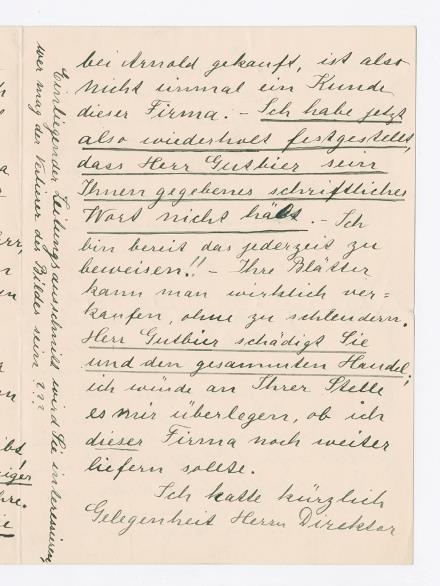 bei Arnold gekauft, ist also
nicht einmal ein Kunde
dieser Firma. – Ich habe jetzt
also wiederholt festgestellt,
dass Herr Gutbier sein
Ihnen gegebenes schriftliches
Wort nicht hält. – Ich
bin bereit das jederzeit zu
beweisen!! – Ihre Blätter
kann man wirklich ver=
kaufen, ohne zu schleudern.
Herr Gutbier schädigt Sie
und den gesammten Handel;
ich würde an Ihrer Stelle
es mir überlegen, ob ich
dieser Firma noch weiter
liefern sollte.
Ich hatte kürzlich
Gelegenheit Herrn Direktor
Einliegender Zeitungsausschnitt wird Sie interessieren,
wer mag der des Bildes sein ???